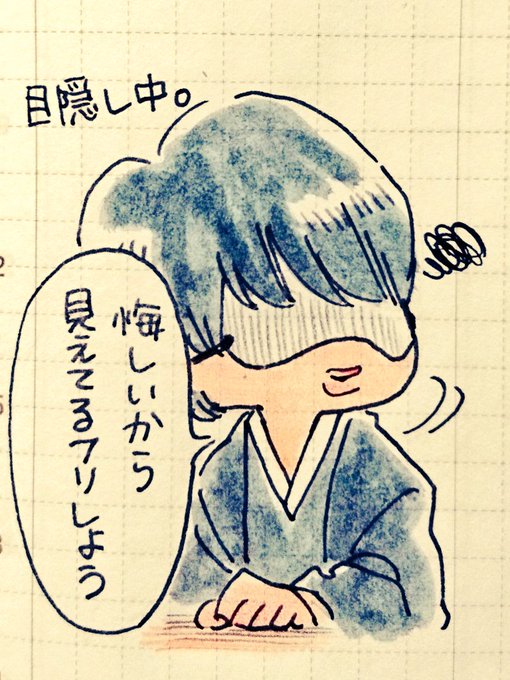 目隠し中。
悔しいから
見えてるフリしよう